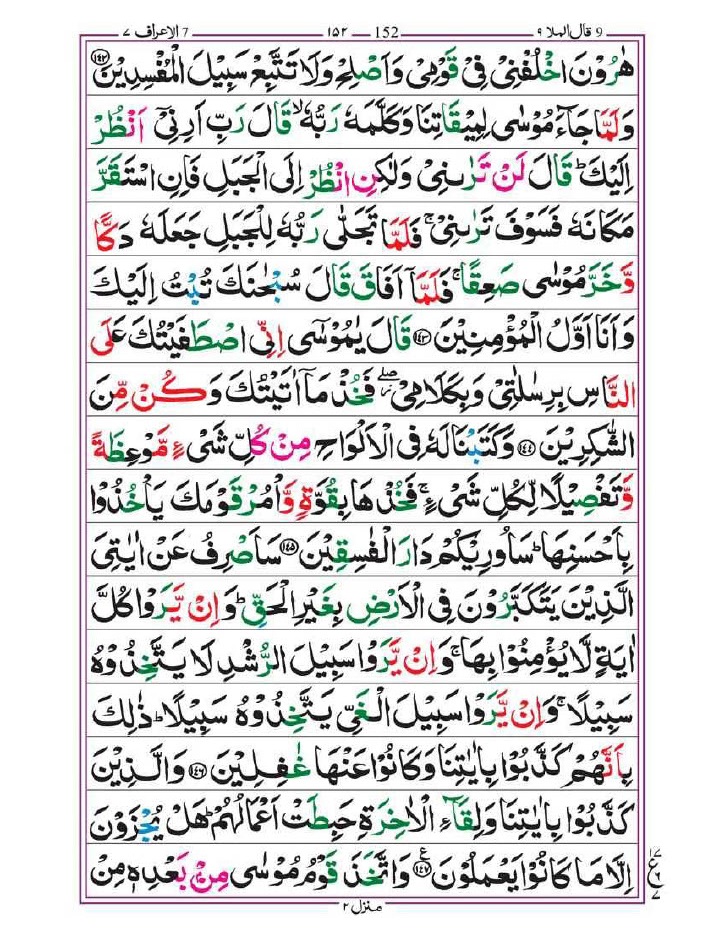 9 قال الملا ۹ — 152 — ۱۵۲ — 7 الاعراف ۷
هٰرُوْنَ اخْلُفْنِیْ فِیْ قَوْمِیْ وَاَصْلِحْ وَلَا تَتَّبِعْ سَبِیْلَ الْمُفْسِدِیْنَ ﴿۱۴۲﴾
وَلَمَّا جَآءَ مُوْسٰی لِمِیْقَاتِنَا وَكَلَّمَهٗ رَبُّهٗ ۙ قَالَ رَبِّ اَرِنِیْۤ اَنْظُرْ
اِلَیْكَ ؕ قَالَ لَنْ تَرٰىنِیْ وَلٰكِنِ انْظُرْ اِلَی الْجَبَلِ فَاِنِ اسْتَقَرَّ
مَكَانَهٗ فَسَوْفَ تَرٰىنِیْ ۚ فَلَمَّا تَجَلّٰی رَبُّهٗ لِلْجَبَلِ جَعَلَهٗ دَكًّا
وَّخَرَّ مُوْسٰی صَعِقًا ۚ فَلَمَّاۤ اَفَاقَ قَالَ سُبْحٰنَكَ تُبْتُ اِلَیْكَ
وَاَنَا اَوَّلُ الْمُؤْمِنِیْنَ ﴿۱۴۳﴾ قَالَ یٰمُوْسٰۤی اِنِّی اصْطَفَیْتُكَ عَلَی
النَّاسِ بِرِسٰلٰتِیْ وَبِكَلَامِیْ ۖ فَخُذْ مَاۤ اٰتَیْتُكَ وَكُنْ مِّنَ
الشّٰكِرِیْنَ ﴿۱۴۴﴾ وَكَتَبْنَا لَهٗ فِی الْاَلْوَاحِ مِنْ كُلِّ شَیْءٍ مَّوْعِظَةً
وَّتَفْصِیْلًا لِّكُلِّ شَیْءٍ ۚ فَخُذْهَا بِقُوَّةٍ وَّاْمُرْ قَوْمَكَ یَاْخُذُوْا
بِاَحْسَنِهَا ؕ سَاُورِیْكُمْ دَارَ الْفٰسِقِیْنَ ﴿۱۴۵﴾ سَاَصْرِفُ عَنْ اٰیٰتِیَ
الَّذِیْنَ یَتَكَبَّرُوْنَ فِی الْاَرْضِ بِغَیْرِ الْحَقِّ ؕ وَاِنْ یَّرَوْا كُلَّ
اٰیَةٍ لَّا یُؤْمِنُوْا بِهَا ۚ وَاِنْ یَّرَوْا سَبِیْلَ الرُّشْدِ لَا یَتَّخِذُوْهُ
سَبِیْلًا ۚ وَاِنْ یَّرَوْا سَبِیْلَ الْغَیِّ یَتَّخِذُوْهُ سَبِیْلًا ؕ ذٰلِكَ
بِاَنَّهُمْ كَذَّبُوْا بِاٰیٰتِنَا وَكَانُوْا عَنْهَا غٰفِلِیْنَ ﴿۱۴۶﴾ وَالَّذِیْنَ
كَذَّبُوْا بِاٰیٰتِنَا وَلِقَآءِ الْاٰخِرَةِ حَبِطَتْ اَعْمَالُهُمْ ؕ هَلْ یُجْزَوْنَ
اِلَّا مَا كَانُوْا یَعْمَلُوْنَ ﴿۱۴۷﴾ ع وَاتَّخَذَ قَوْمُ مُوْسٰی مِنْۢ بَعْدِهٖ مِنْ
منزل ۲